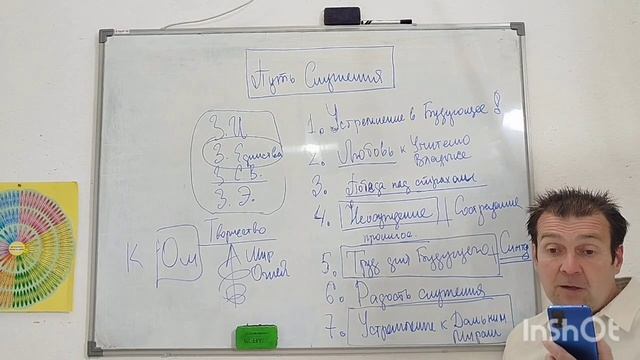 Путь Служения
З. И
З. Единства
З. С.В.
З. Э.
Творчество
К Ом Мир
Огней
1. Устремление в Будущее
2. Любовь к Учителю
Владыке
3. Победа над страхом
4. Неосуждение Сострадание
прошлое.
5. Труд для Будущего Синтез
6. Радость служения
7. Устремление к Дальним
мирам
InShOt